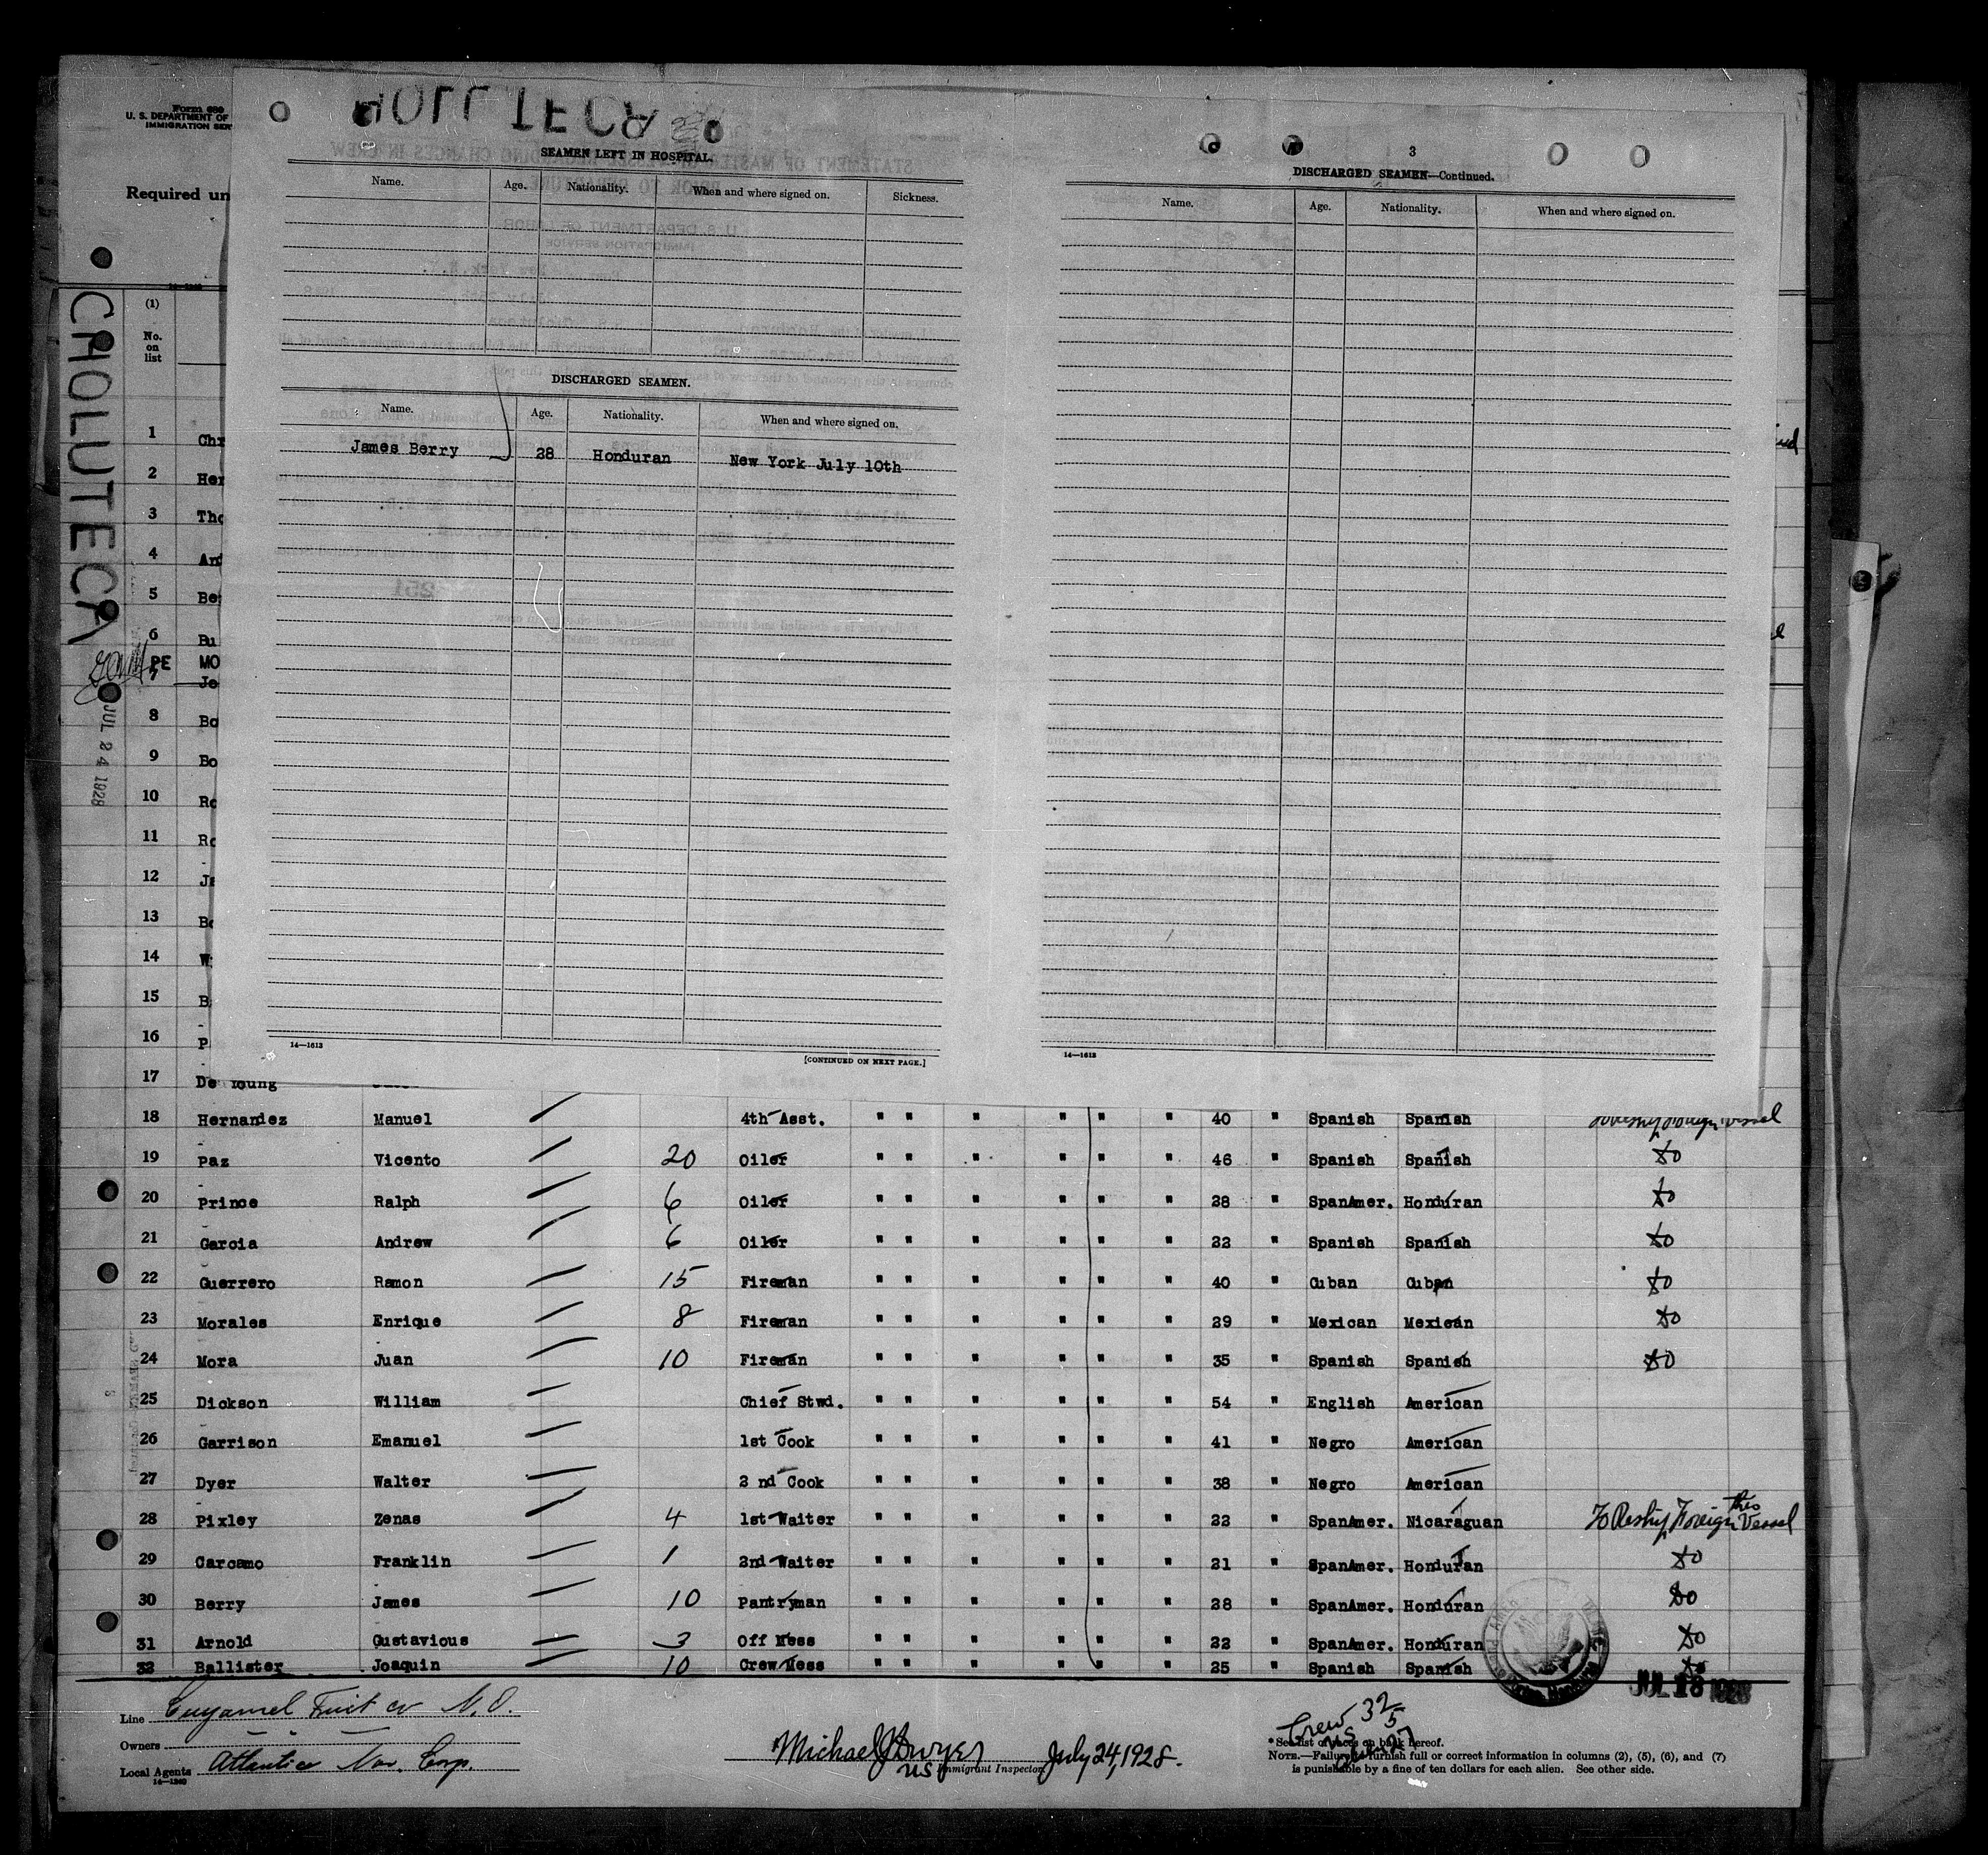 Form 689
U. S. DEPARTMENT OF
IMMIGRATION SER
Required un
CHOLUTECA
JUL 24 1928
(1)
No.
on
list
SEAMEN LEFT IN HOSPITAL.
Name. Age. Nationality. When and where signed on. Sickness.
DISCHARGED SEAMEN.
Name. Age. Nationality. When and where signed on.
James Berry 28 Honduran New York July 10th
14—1613
[CONTINUED ON NEXT PAGE.]
3
DISCHARGED SEAMEN—Continued.
Name. Age. Nationality. When and where signed on.
14—1613
1 Chr
2 Her
3 Tho
4 And
5 Be
6 Bu
PE MO
7 Jo
8 Bo
9 Bo
10 Ro
11 Ro
12 Ja
13 Bo
14 W
15 B
16 P
17 De Young
18 Hernandez Manuel 4th Asst. " " " " " " 40 " Spanish Spanish
19 Paz Vicento 20 Oiler " " " " " " 46 " Spanish Spanish do
20 Prince Ralph 6 Oiler " " " " " " 28 " SpanAmer. Honduran do
21 Garcia Andrew 6 Oiler " " " " " " 22 " Spanish Spanish do
22 Guerrero Ramon 15 Fireman " " " " " " 40 " Cuban Cuban do
23 Morales Enrique 8 Fireman " " " " " " 29 " Mexican Mexican do
24 Mora Juan 10 Fireman " " " " " " 35 " Spanish Spanish do
25 Dickson William Chief Stwd. " " " " " " 54 " English American
26 Garrison Emanuel 1st Cook " " " " " " 41 " Negro American
27 Dyer Walter 2 nd Cook " " " " " " 38 " Negro American
28 Pixley Zenas 4 1st Waiter " " " " " " 22 " SpanAmer. Nicaraguan To Reship Foreign this Vessel
29 Carcamo Franklin 1 2nd Waiter " " " " " " 21 " SpanAmer. Honduran do
30 Berry James 10 Pantryman " " " " " " 28 " SpanAmer. Honduran do
31 Arnold Gustavious 3 Off Mess " " " " " " 22 " SpanAmer. Honduran do
32 Ballister Joaquin 10 Crew Mess " " " " " " 25 " Spanish Spanish do
JUL 18 1928
Line Cuyamel Fruit Co N. O.
Owners
Local Agents Atlantic Nav. Corp.
14—1240
Michael J Dwyer July 24, 1928.
US Immigrant Inspector
Crew 32
US 5
27
* See list of races on back hereof.
NOTE.—Failure to furnish full or correct information in columns (2), (5), (6), and (7)
is punishable by a fine of ten dollars for each alien. See other side.